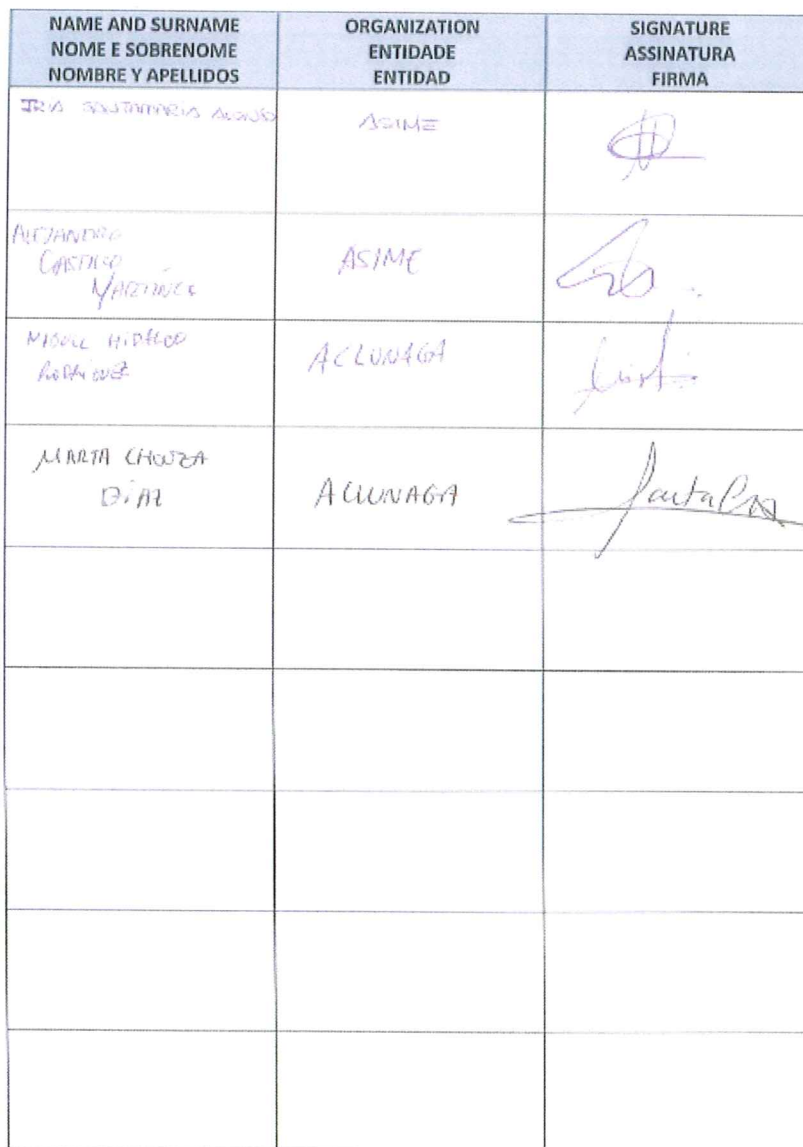 NAME AND SURNAME
NOME E SOBRENOME
NOMBRE Y APELLIDOS
ORGANIZATION
ENTIDADE
ENTIDAD
SIGNATURE
ASSINATURA
FIRMA
IRIA SANTAMARIA ALONSO
ASIME
ALEJANDRO
CASTILLO
MARTÍNEZ
ASIME
MIGUEL HIDALGO
RODRÍGUEZ
ACLUNAGA
MARTA CHOUZA
DÍAZ
ACLUNAGA